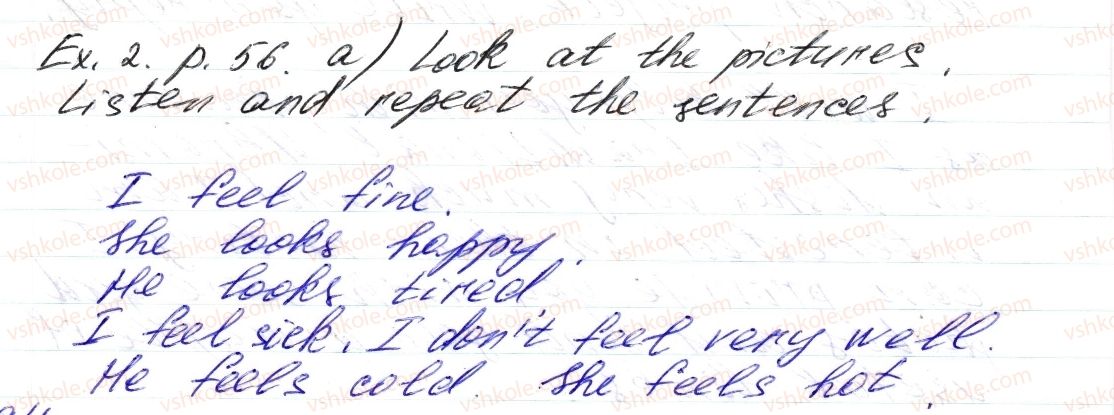 Ex. 2. p. 56. a) Look at the pictures.
Listen and repeat the sentences.
I feel fine.
She looks happy.
He looks tired
I feel sick. I don't feel very well.
He feels cold. She feels hot.